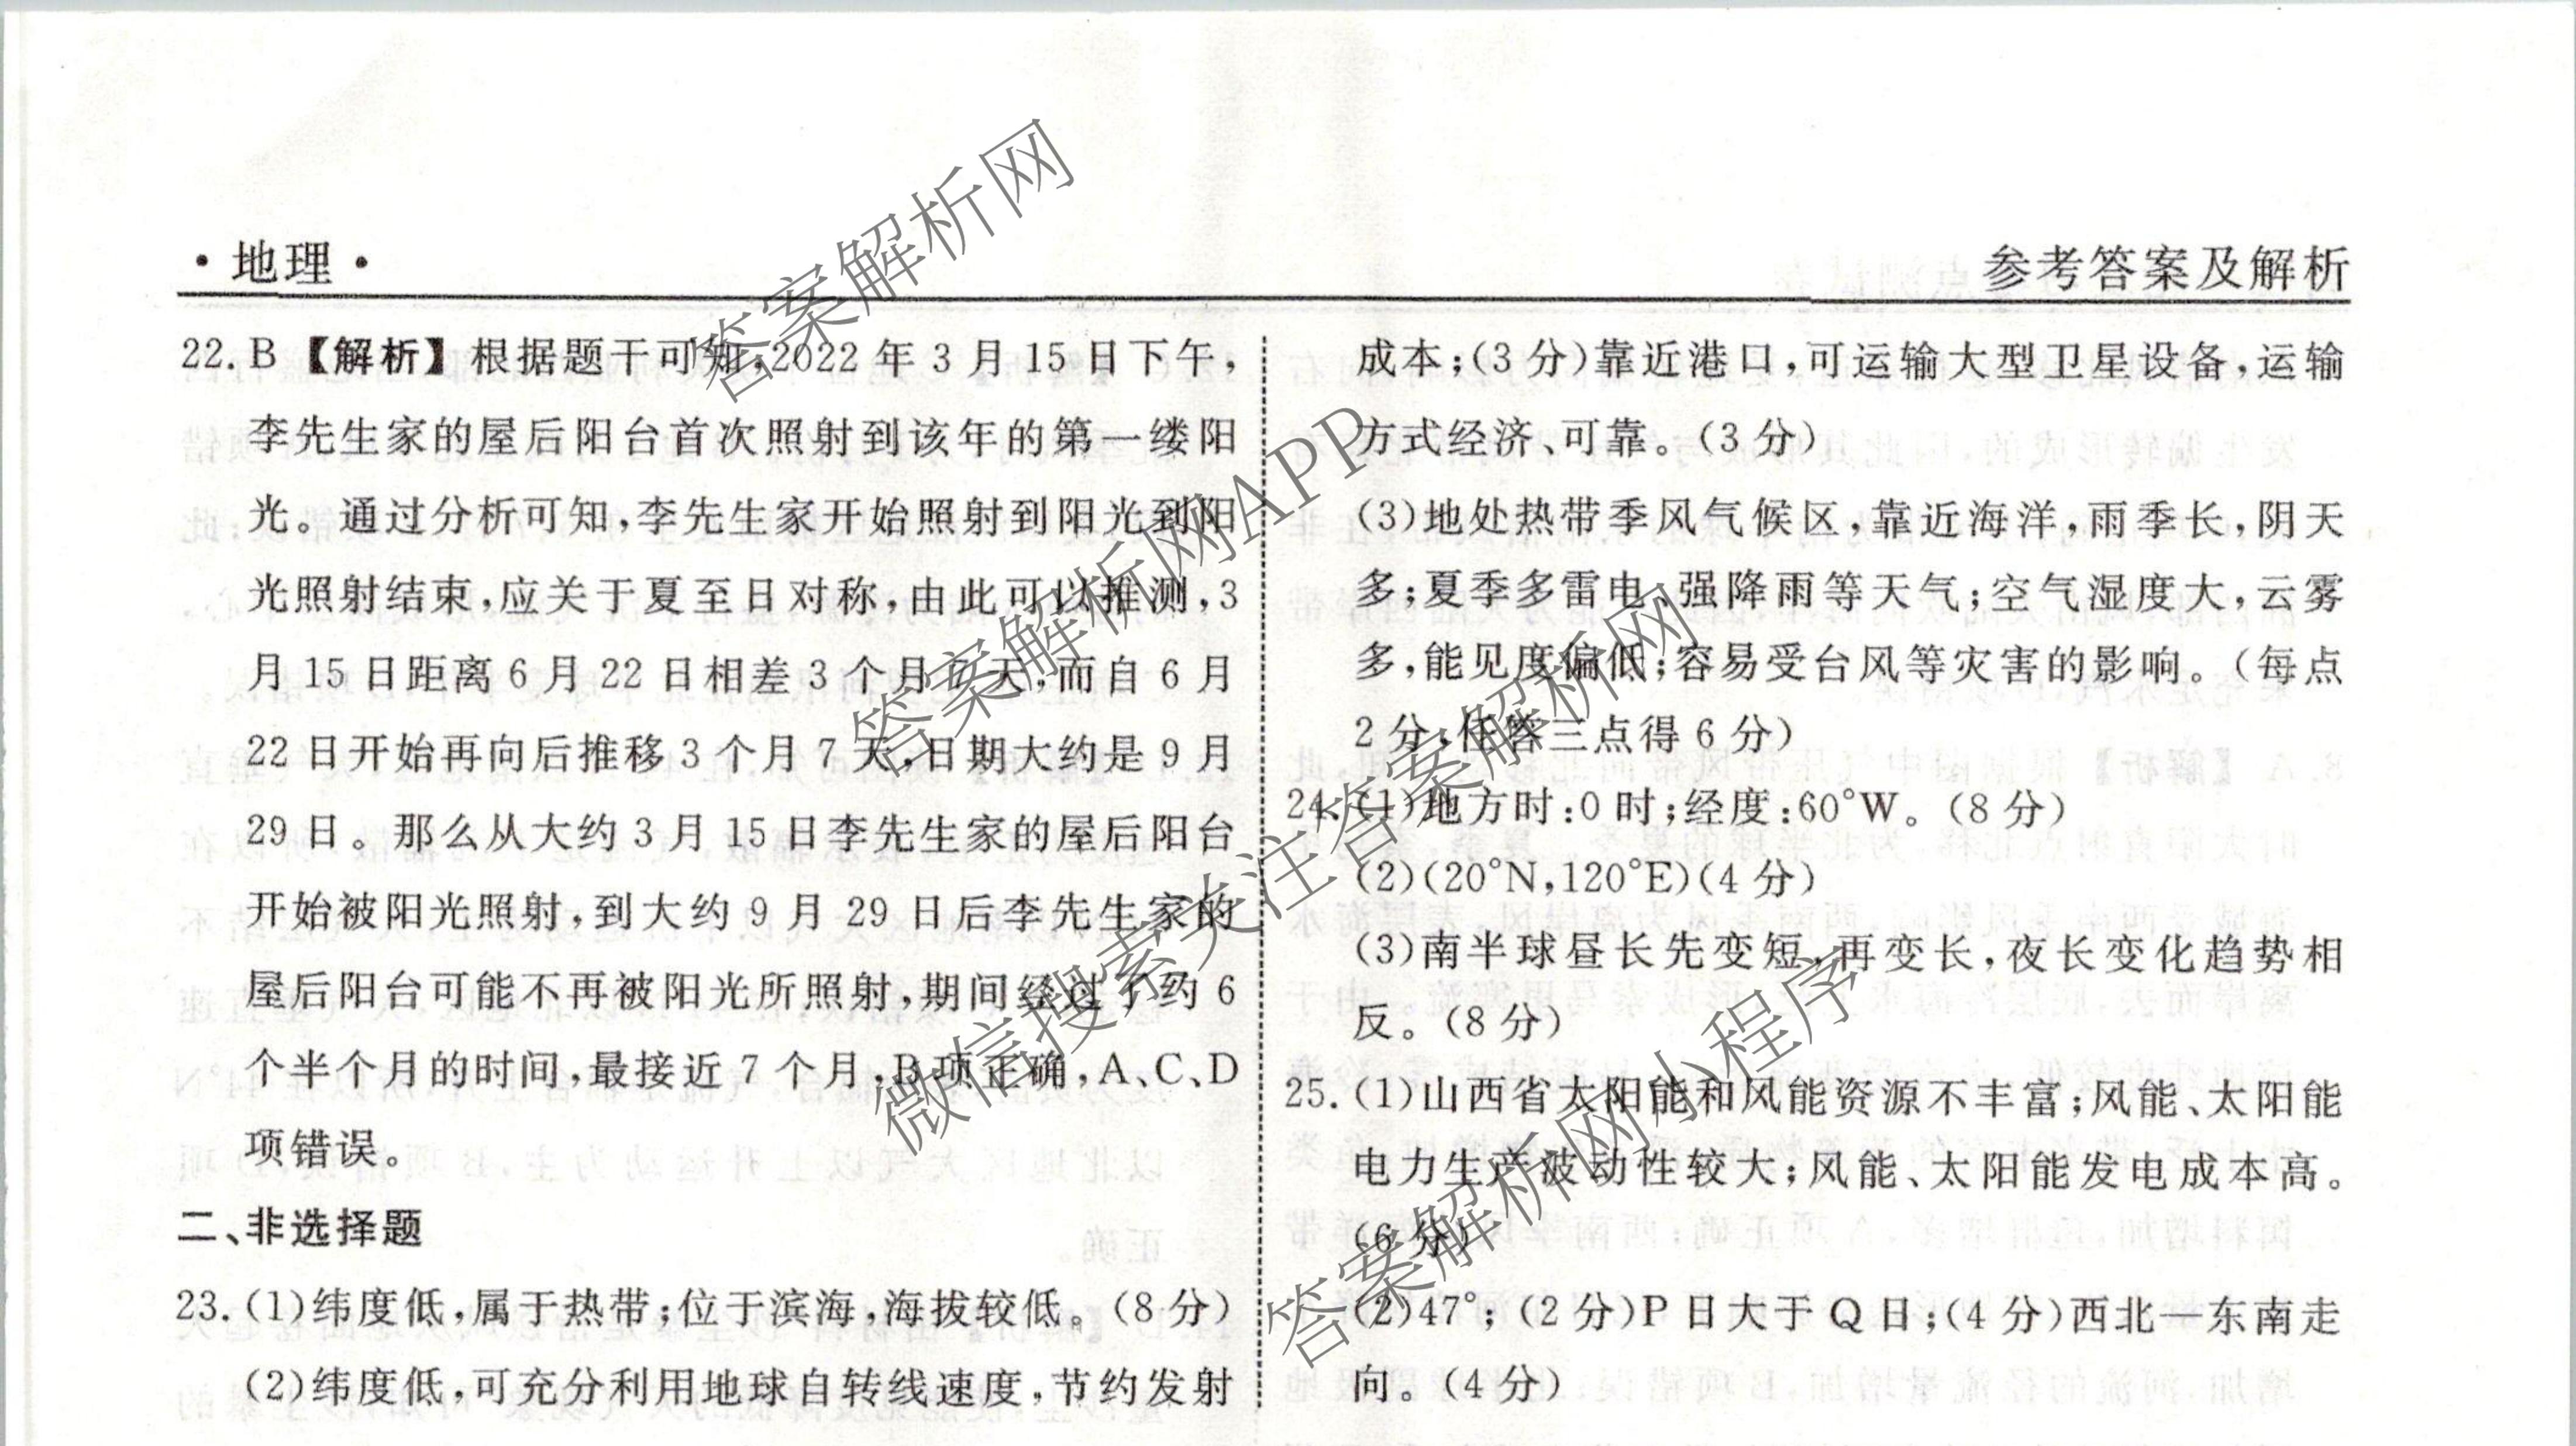 ·地理·
参考答案及解析
22.B【解析】根据题干可知,2022年3月15日下午,
李先生家的屋后阳台首次照射到该年的第一缕阳
光。通过分析可知,李先生家开始照射到阳光到阳
光照射结束,应关于夏至日对称,由此可以推测,3
月15日距离6月22日相差3个月7天,而自6月
22日开始再向后推移3个月7天,日期大约是9月
29日。那么从大约3月15日李先生家的屋后阳台
开始被阳光照射,到大约9月29日后李先生家的
屋后阳台可能不再被阳光所照射,期间经过了约6
个半个月的时间,最接近7个月,B项正确,A、C、D
项错误。
二、非选择题
23.(1)纬度低,属于热带;位于滨海,海拔较低。(8分)
(2)纬度低,可充分利用地球自转线速度,节约发射
成本;(3分)靠近港口,可运输大型卫星设备,运输
方式经济、可靠。(3分)
(3)地处热带季风气候区,靠近海洋,雨季长,阴天
多;夏季多雷电、强降雨等天气;空气湿度大,云雾
多,能见度偏低;容易受台风等灾害的影响。(每点
2分,任答三点得6分)
24.(1)地方时:0时;经度:60°W。(8分)
(2)(20°N,120°E)(4分)
(3)南半球昼长先变短,再变长,夜长变化趋势相
反。(8分)
25.(1)山西省太阳能和风能资源不丰富;风能、太阳能
电力生产波动性较大;风能、太阳能发电成本高。
(6分)
(2)47°;(2分)P日大于Q日;(4分)西北—东南走
向。(4分)
答案解析网
答案解析网APP
微信搜索关注答案解析网
答案解析网小程序